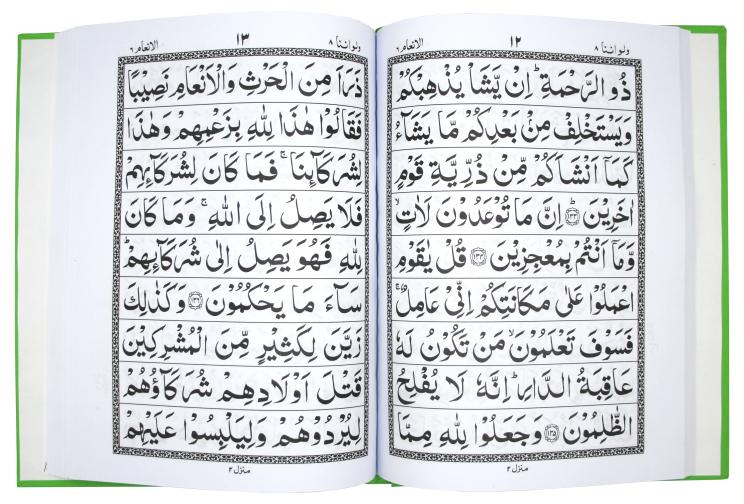 ولواننا ٨
١٢
الانعام ٦
ذُو الرَّحْمَةِ ؕ اِنْ يَّشَاْ يُذْهِبْكُمْ
وَيَسْتَخْلِفْ مِنْۢ بَعْدِكُمْ مَّا يَشَآءُ
كَمَاۤ اَنْشَاَكُمْ مِّنْ ذُرِّيَّةِ قَوْمٍ
اٰخَرِيْنَ ؕ ﴿١٣٣﴾ اِنَّ مَا تُوْعَدُوْنَ لَاٰتٍ ۙ
وَّمَاۤ اَنْتُمْ بِمُعْجِزِيْنَ ﴿١٣٤﴾ قُلْ يٰقَوْمِ
اعْمَلُوْا عَلٰى مَكَانَتِكُمْ اِنِّىْ عَامِلٌ ۚ
فَسَوْفَ تَعْلَمُوْنَ ۙ مَنْ تَكُوْنُ لَهٗ
عَاقِبَةُ الدَّارِ ؕ اِنَّهٗ لَا يُفْلِحُ
الظّٰلِمُوْنَ ﴿١٣٥﴾ وَجَعَلُوْا لِلّٰهِ مِمَّا
منزل ٢
ولواننا ٨
١٣
الانعام ٦
ذَرَاَ مِنَ الْحَرْثِ وَالْاَنْعَامِ نَصِيْبًا
فَقَالُوْا هٰذَا لِلّٰهِ بِزَعْمِهِمْ وَهٰذَا
لِشُرَكَآئِنَا ۚ فَمَا كَانَ لِشُرَكَآئِهِمْ
فَلَا يَصِلُ اِلَى اللّٰهِ ۚ وَمَا كَانَ
لِلّٰهِ فَهُوَ يَصِلُ اِلٰى شُرَكَآئِهِمْ ؕ
سَآءَ مَا يَحْكُمُوْنَ ﴿١٣٦﴾ وَكَذٰلِكَ
زَيَّنَ لِكَثِيْرٍ مِّنَ الْمُشْرِكِيْنَ
قَتْلَ اَوْلَادِهِمْ شُرَكَآؤُهُمْ
لِيُرْدُوْهُمْ وَلِيَلْبِسُوْا عَلَيْهِمْ
منزل ٢